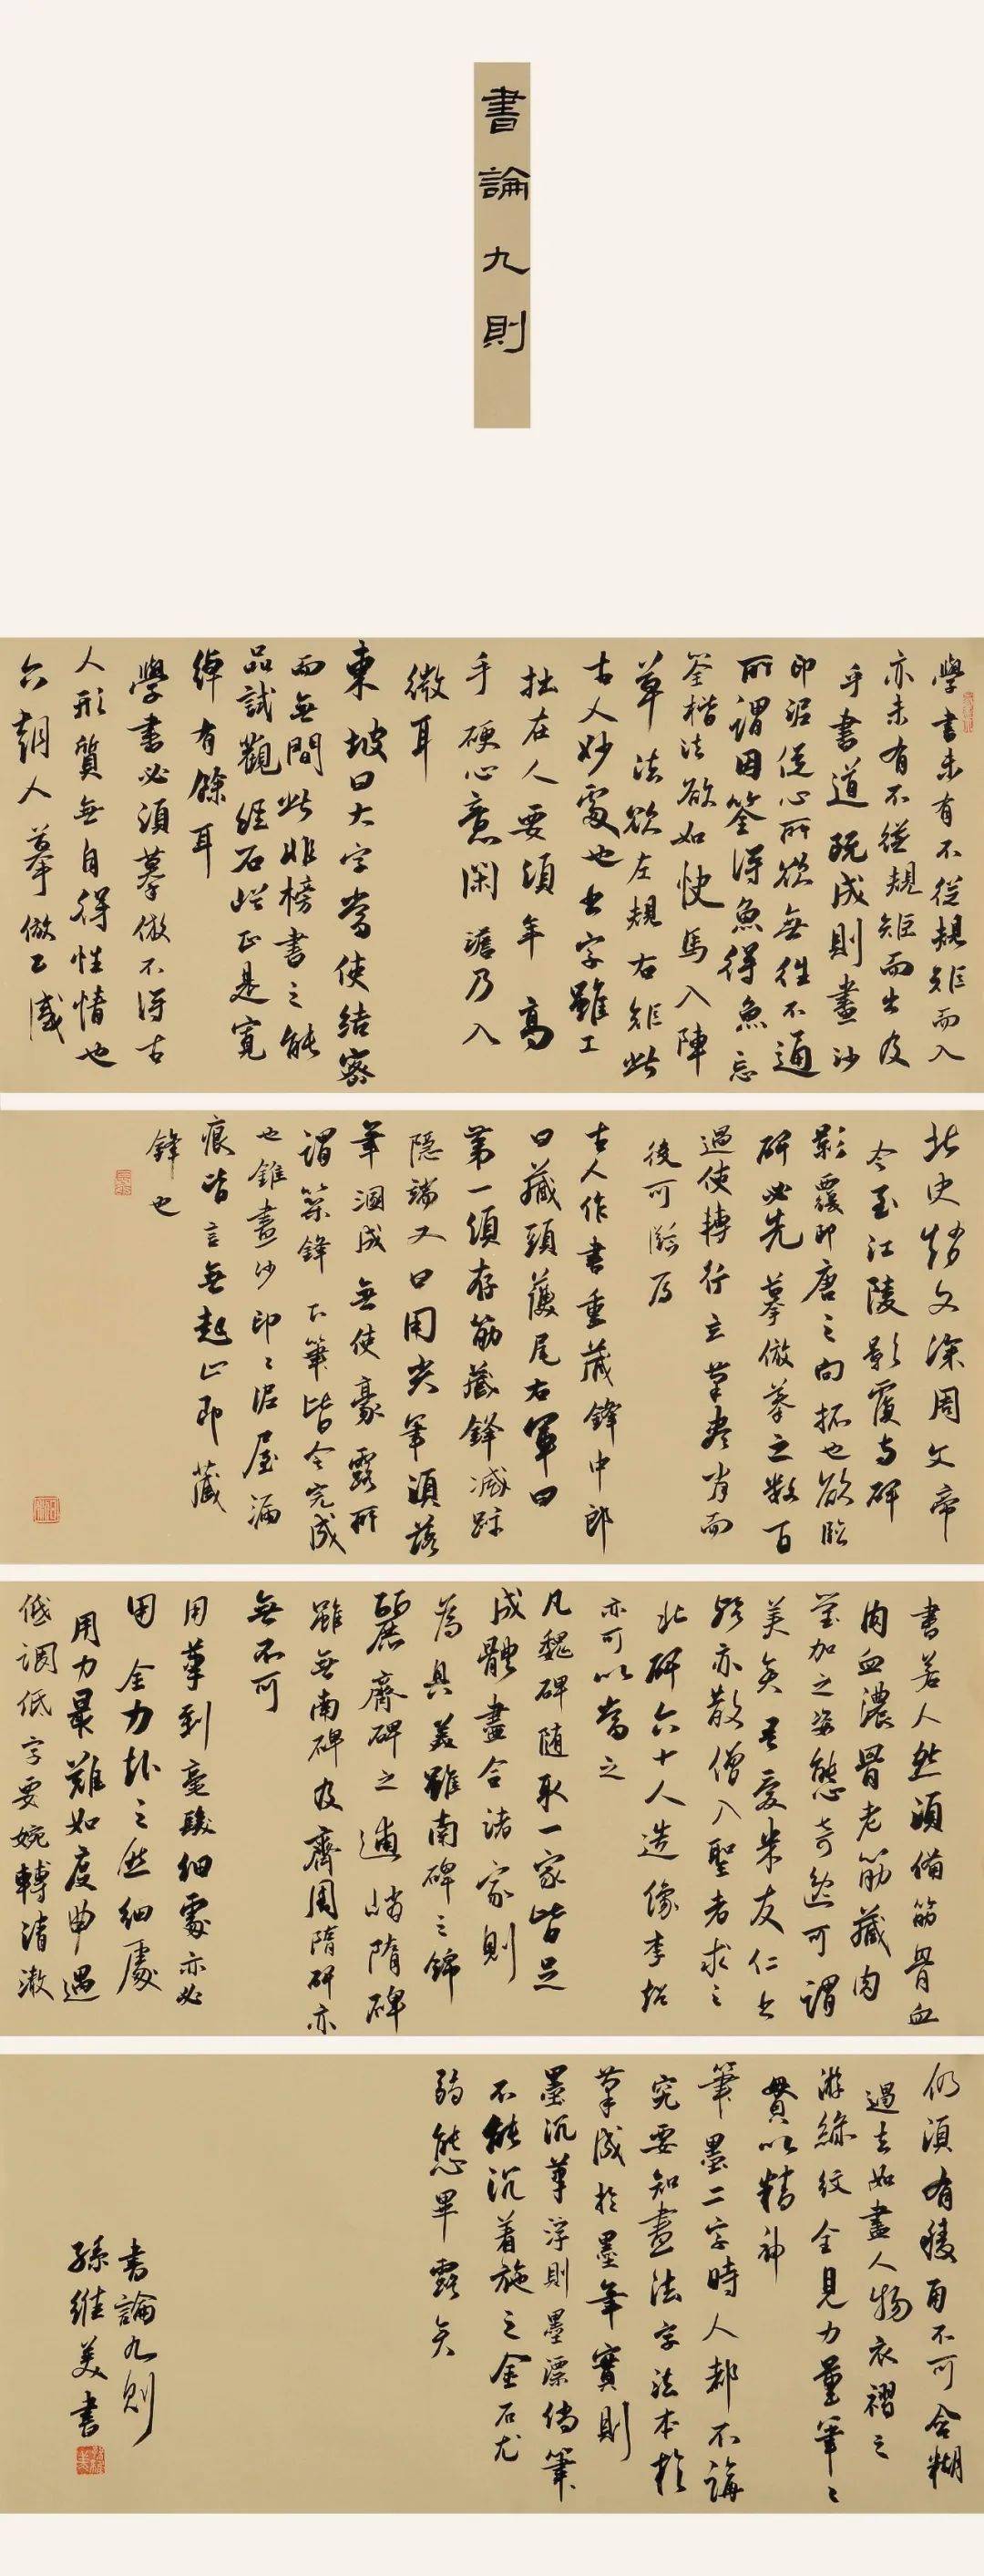 書論九則
學書未有不從規矩而入
亦未有不從規矩而出及
乎書道既成則畫沙
印泥從心所欲無往不通
所謂因筌得魚得魚忘
筌楷法欲如快馬入陣
草法欲左規右矩此
古人妙處也書字雖工
拙在人要須年高
手硬心意閑澹乃入
微耳
東坡曰大字當使結密
而無間此非榜書之能
品試觀經石峪正是寬
綽有餘耳
學書必須摹倣不得古
人形質無自得性情也
六朝人摹倣已盛
北史趙文深周文帝
令至江陵影覆寺碑
影覆即唐之向拓也欲臨
碑必先摹倣摹之數百
過使轉行立筆盡肖而
後可臨焉
古人作書重藏鋒中郎
曰藏頭護尾右軍曰
第一須存筋藏鋒滅跡
隱端又曰用尖筆須落
筆渾成無使豪露所
謂築鋒下筆皆令完成
也錐畫沙印印泥屋漏
痕皆言無起止即藏
鋒也
書若人然須備筋骨血
肉血濃骨老筋藏肉
瑩加之姿態奇逸可謂
美矣吾愛朱友仁書
殆亦散僧入聖者求之
北碑六十人造像李超
亦可以當之
凡魏碑随取一家皆足
成體盡合諸家則
為具美雖南碑之綿
麗齊碑之逋峭隋碑
雖無南碑及齊周隋碑亦
無不可
用筆到毫髮細處亦必
用全力赴之然細處
用力最難如度曲遇
低調低字要婉轉清澈
仍須有稜角不可含糊
過去如畫人物衣褶之
游絲紋全見力量筆筆
貫以精神
筆墨二字時人都不講
究要知畫法字法本於
筆成於墨筆實則
墨沉筆浮則墨漂倘筆
不能沉着施之金石尤
弱態畢露矣
書論九則
孫維美書